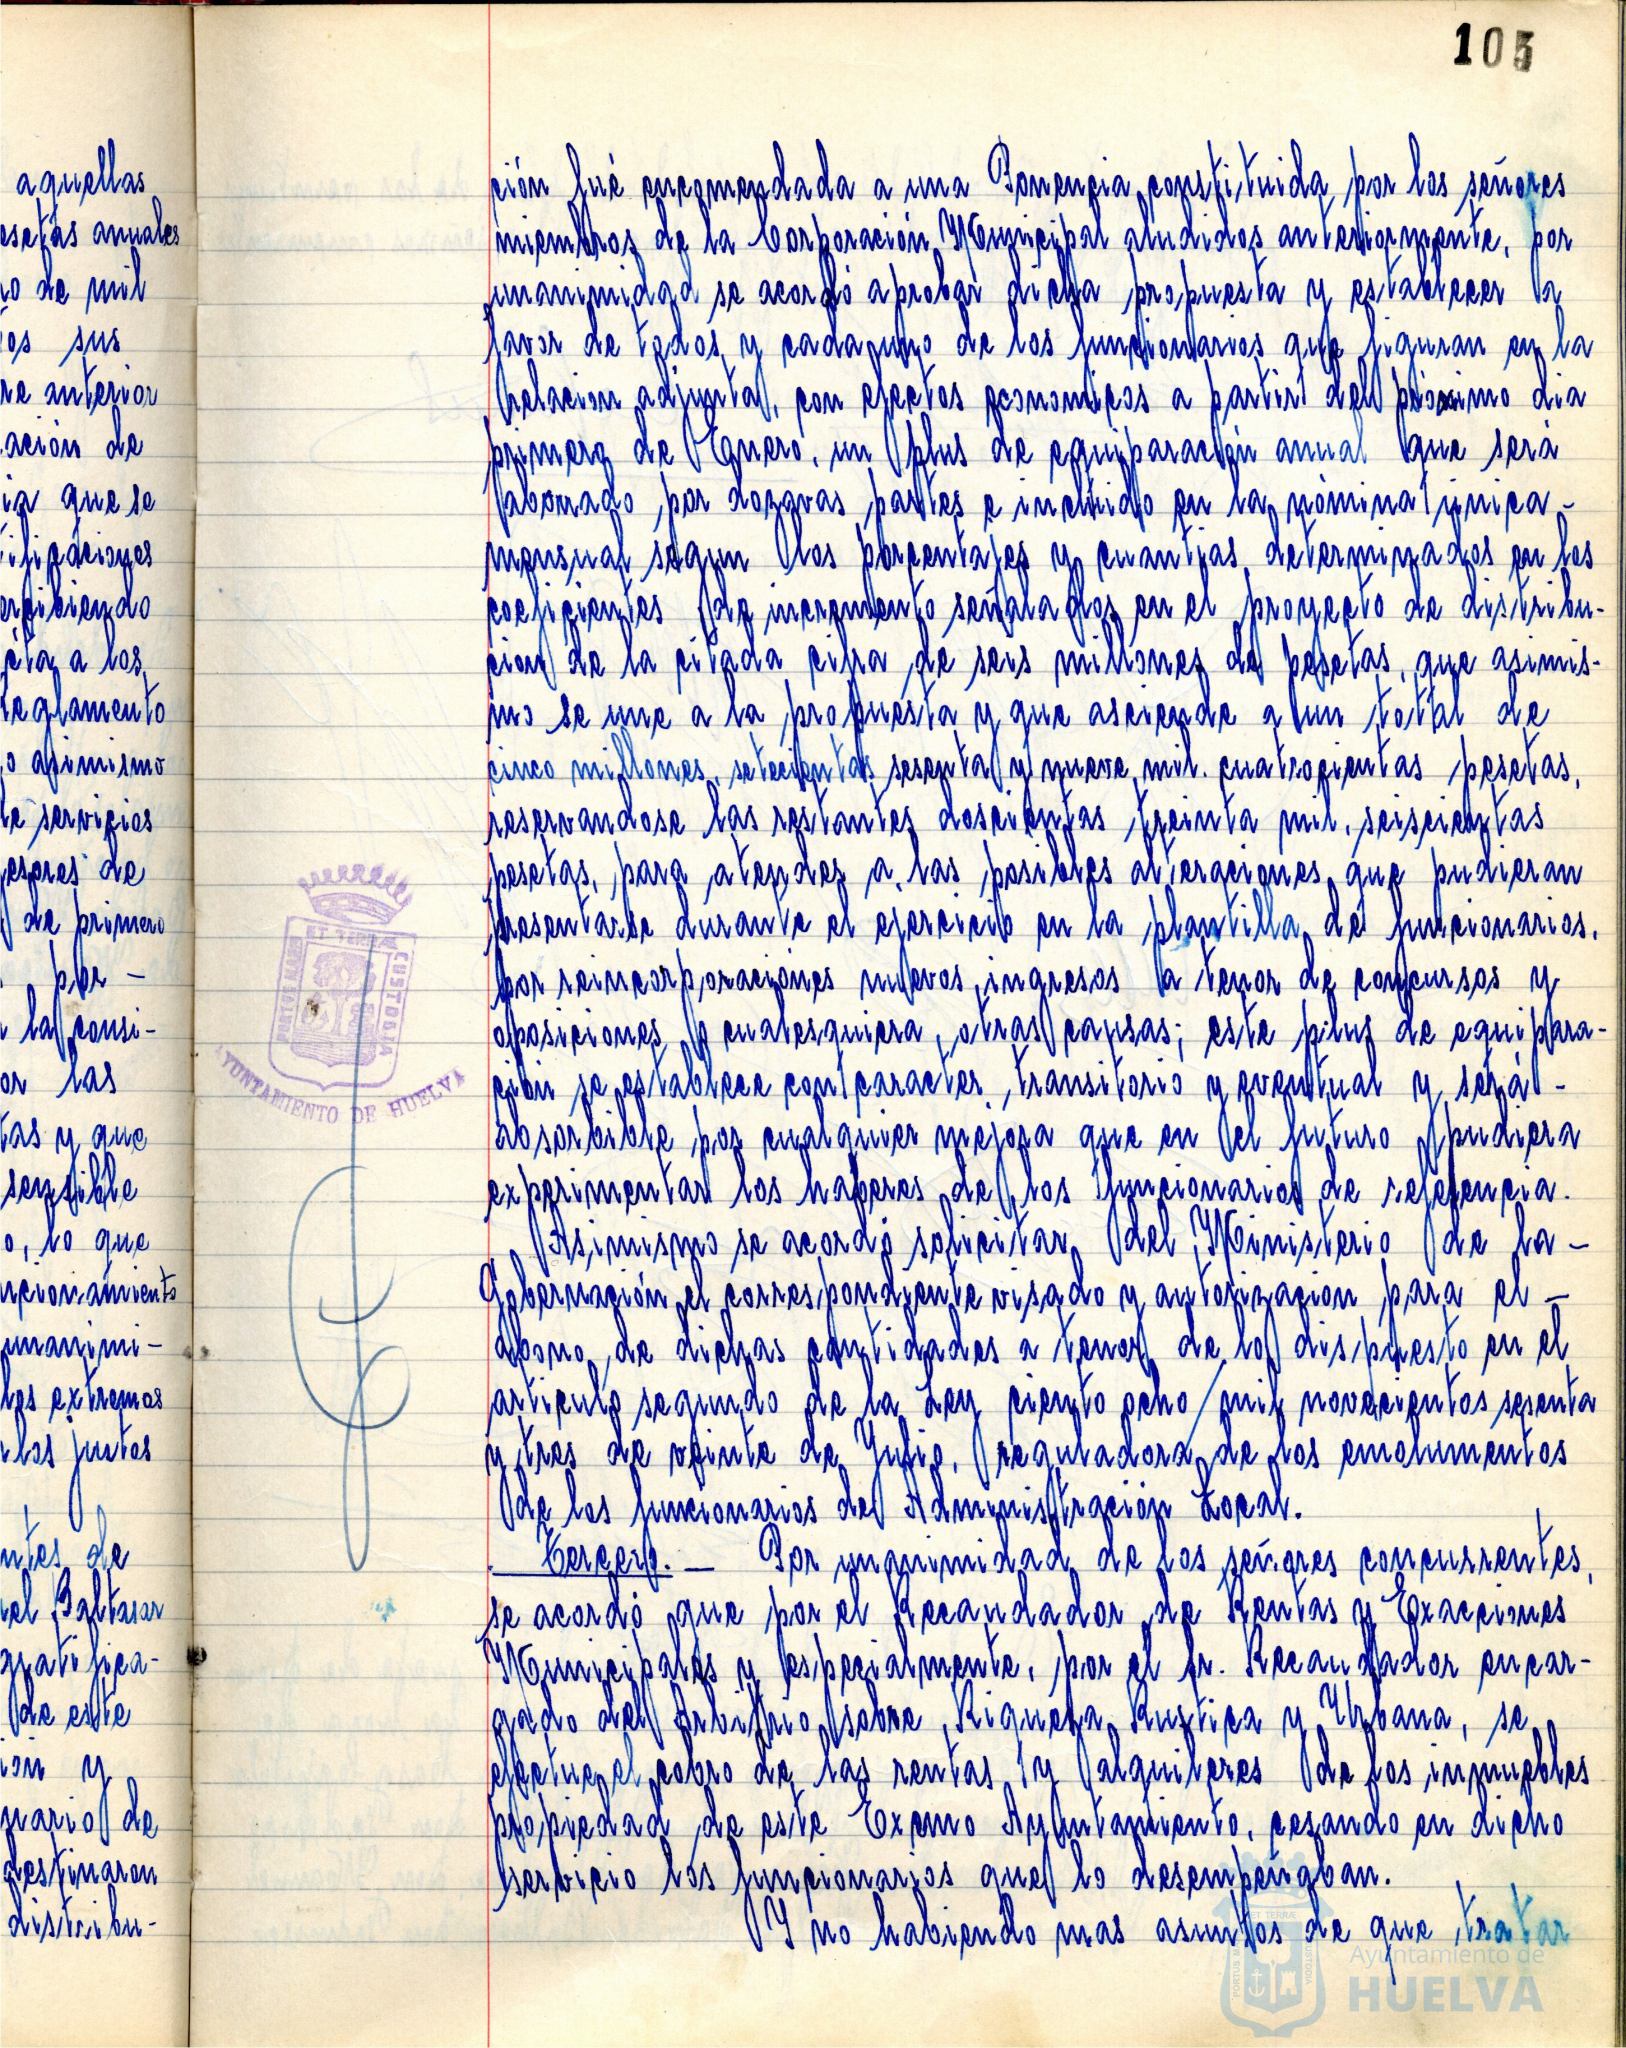 105
aquellas
esetas anuales
o de mil
os sus
re anterior
ación de
ia que se
ercibiendo
cta a los
reglamento
o asimismo
de servicios
de
de primero
por -
la consi-
or las
tas y que
sensible
o, lo que
ncionamiento
unanimi-
los extremos
los justos
ntes de
el Baltasar
gratifica-
de este
ión y
nario de
destinaron
distribu-
ción fué encomendada a una Ponencia constituida por los señores
miembros de la Corporación Municipal aludidos anteriormente, por
unanimidad se acordó aprobar dicha propuesta y establecer a
favor de todos y cada uno de los funcionarios que figuran en la
relacion adjunta, con efectos economicos a partir del próximo dia
primero de Enero, un plus de equiparación anual que será
abonado por dozavas partes e incluido en la nómina única -
mensual segun los porcentajes y cuantias determinados en los
coeficientes de incremento señalados en el proyecto de distribu-
cion de la citada cifra de seis millones de pesetas, que asimis-
mo se une a la propuesta y que asciende a un total de
cinco millones, setecientas sesenta y nueve mil cuatrocientas pesetas,
reservandose las restantes doscientas treinta mil, seiscientas
pesetas, para atender a las posibles alteraciones que pudieran
presentarse durante el ejercicio en la plantilla de funcionarios,
por reincorporaciones nuevos ingresos a tenor de concursos y
oposiciones o cualesquiera otras causas; este plus de equipara-
ción se establece con caracter transitorio y eventual y será -
absorbible por cualquier mejora que en el futuro pudiera
experimentar los haberes de los funcionarios de referencia.
Asimismo se acordó solicitar del Ministerio de la -
Gobernación el correspondiente visado y autorizacion para el -
abono de dichas cantidades a tenor de lo dispuesto en el
articulo segundo de la Ley ciento ocho/mil novecientos sesenta
y tres de veinte de Julio, reguladora de los emolumentos
de los funcionarios de Administración Local.
Tercero. - Por unanimidad de los señores concurrentes,
se acordó que por el Recaudador de Rentas y Exacciones
Municipales y especialmente, por el Sr. Recaudador encar-
gado del Arbitrio sobre Riqueza Rustica y Urbana, se
efectue el cobro de las rentas y alquileres de los inmuebles
propiedad de este Excmo Ayuntamiento, cesando en dicho
servicio los funcionarios que lo desempeñaban.
Y no habiendo mas asuntos de que tratar
PORTUS MARIS ET TERRAE CUSTODIA
AYUNTAMIENTO DE HUELVA
Ayuntamiento de
HUELVA